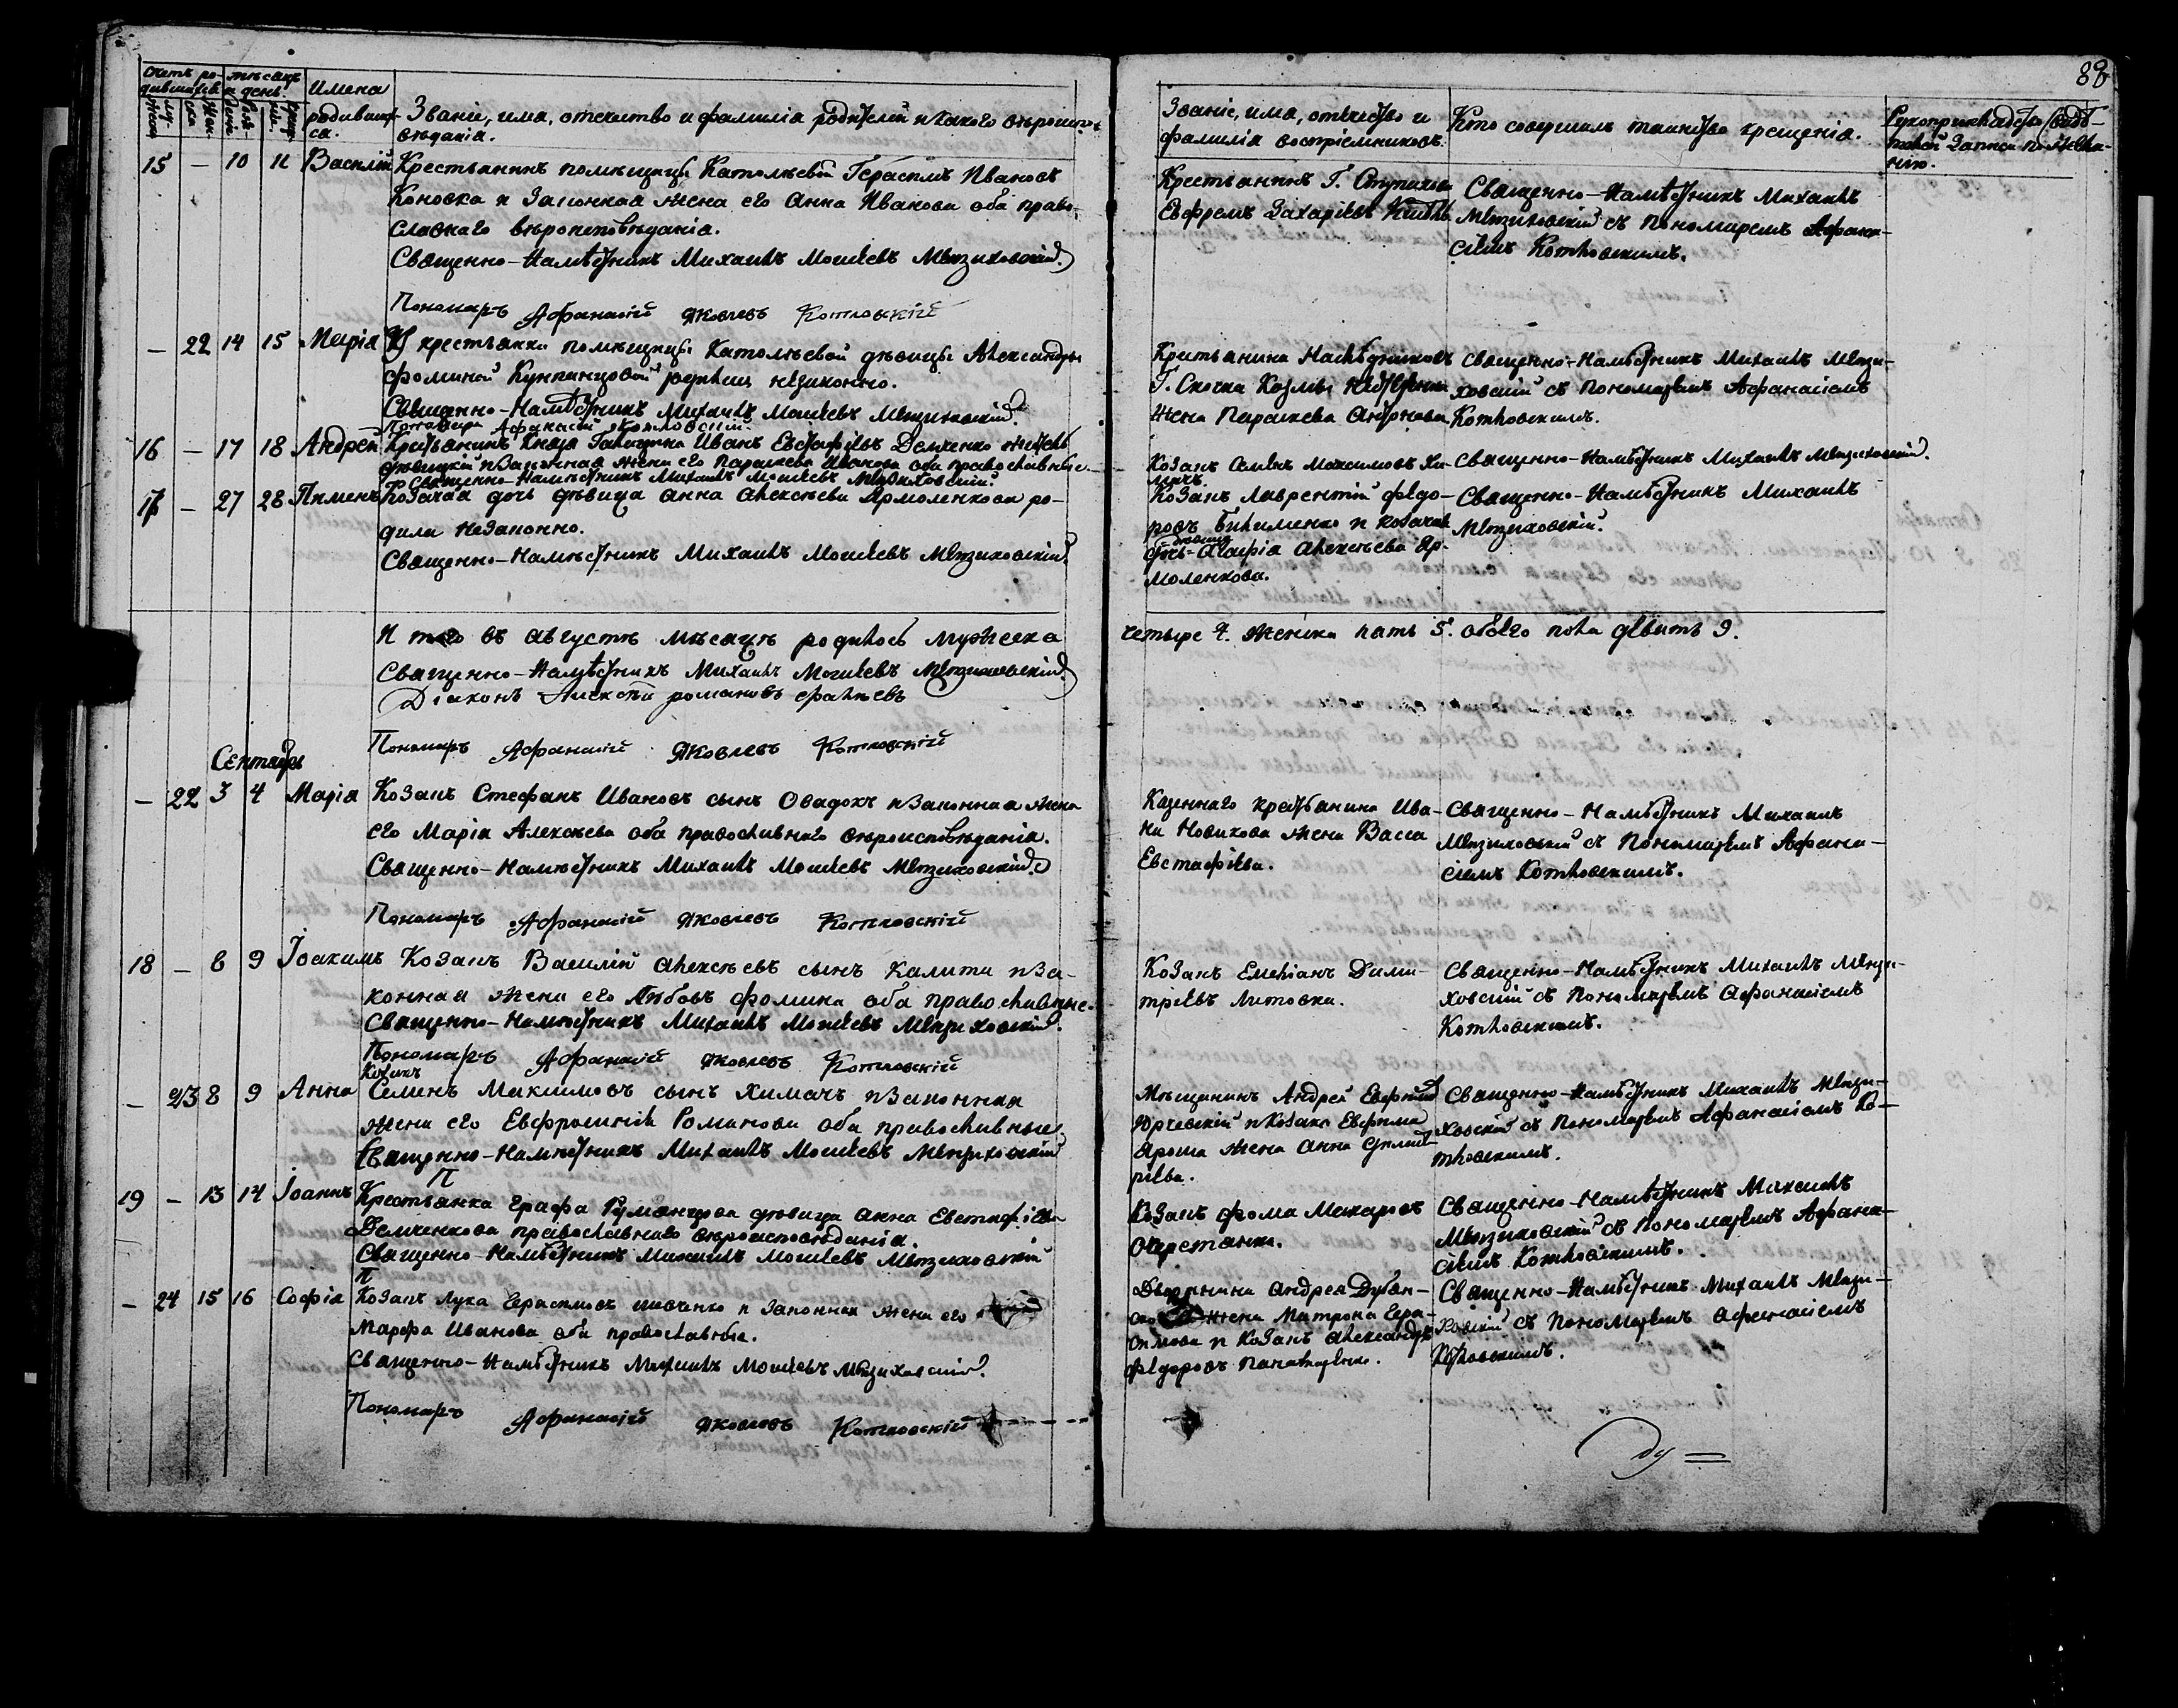 88
Счетъ ро-
дившихся
мѣсяцъ
и день.
Имена
родивших-
ся.
Званіе, има, отечество и фамилія родителей и какого вѣроиспо-
вѣданія.
Званіе, има, отечество и
фамилія воспріемниковъ.
Кто совершалъ таинство крещенія.
Рукоприкладство свидѣ-
телей записи по жела-
нію.
15 — 10 11 Василій
Крестьянинъ помѣщицы Католѣевой Герасимъ Ивановъ
Коновка и Законная жена его Анна Иванова оба право-
славнаго вѣроисповѣданія.
Священно-Намѣстникъ Михаилъ Моисеевъ Мензиховскій
Пономарь Афанасій Яковлевъ Котловскій
Крестьянинъ Г. Ступахова
Евфремъ Захаріевъ
Священно-Намѣстникъ Михаилъ
Мензиховскій съ Пономаремъ Афана-
сіемъ Котловскимъ.
— 22 14 15 Марія
крестьянки помѣщицы Католѣевой дѣвицы Александры
Фоминой незаконно.
Священно-Намѣстникъ Михаилъ Моисеевъ Мензиховскій
Пономарь Афанасій Котловскій.
Крестьянина Наслѣдниковъ
Г. Скочка Козьмы
жена Параскева
Священно-Намѣстникъ Михаилъ Мензи-
ховскій съ Пономаремъ Афанасіемъ
Котловскимъ.
16 — 17 18 Андрей
Крестьянинъ Князя Голицына Иванъ Евстафіевъ Демченко
и Законная жена его Параскева Иванова оба православные.
Священно-Намѣстникъ Михаилъ Моисеевъ Мензиховскій
Козакъ Семенъ Максимовъ Хи-
мичъ.
Священно-Намѣстникъ Михаилъ Мензиховскій.
17 — 27 28 Пименъ
Козачая дочь дѣвица Анна Алексѣева Ярмоленкова ро-
дила незаконно.
Священно-Намѣстникъ Михаилъ Моисеевъ Мензиховскій
Козакъ Лаврентій Федо-
ровъ и козачая
дочь Агафія Алексѣева Яр-
моленкова.
Священно-Намѣстникъ Михаилъ
Мензиховскій.
И того въ августѣ мѣсяцѣ родилось мужеска
четыре 4. женска пять 5. обоего пола девять 9.
Священно-Намѣстникъ Михаилъ Моисеевъ Мензиховскій
Діаконъ Алексѣй романовъ
Пономарь Афанасій Яковлевъ Котловскій
Сентябрь
— 22 3 4 Марія
Козакъ Стефанъ Ивановъ сынъ Овадокъ и Законная жена
его Марія Алексѣева оба православнаго вѣроисповѣданія.
Священно-Намѣстникъ Михаилъ Моисеевъ Мензиховскій
Пономарь Афанасій Яковлевъ Котловскій
Казеннаго крестьянина Ива-
на Новикова жена Васса
Евстафіева.
Священно-Намѣстникъ Михаилъ
Мензиховскій съ Пономаремъ Афана-
сіемъ Котловскимъ.
18 — 8 9 Іоакимъ
Козакъ Василій Алексѣевъ сынъ Калита и За-
конная жена его Любовь Фомина оба православные.
Священно-Намѣстникъ Михаилъ Моисеевъ Мензиховскій.
Пономарь Афанасій Яковлевъ Котловскій
Козакъ Емеліанъ Дими-
тріевъ Литовка.
Священно-Намѣстникъ Михаилъ Мензи-
ховскій съ Пономаремъ Афанасіемъ
Котловскимъ.
— 23 8 9 Анна
Козакъ
Семенъ Максимовъ сынъ Химачъ и Законная
жена его Евфросинія Романова оба православные
Священно-Намѣстникъ Михаилъ Моисеевъ Мензиховскій
П
Мѣщанинъ Андрей
Юрчевскій и Козака Евфима
Яроша жена Анна
ріева.
Священно-Намѣстникъ Михаилъ Мензи-
ховскій съ Пономаремъ Афанасіемъ Ко-
тловскимъ.
19 — 13 14 Іоаннъ
Крестьянка Графа Румянцова дѣвица Анна Евстафіева
Демченкова православнаго вѣроисповѣданія.
Священно-Намѣстникъ Михаилъ Моисеевъ Мензиховскій
П
Козакъ Фома Макаровъ
Очеретянко.
Священно-Намѣстникъ Михаилъ
Мензиховскій съ Пономаремъ Афана-
сіемъ Котловскимъ.
— 24 15 16 Софія
Козакъ Лука Герасимовъ Шевченко и Законная жена его
Марфа Иванова оба православные.
Священно-Намѣстникъ Михаилъ Моисеевъ Мензиховскій
Пономарь Афанасій Яковлевъ Котловскій
Дворянина Андрея Дубян-
ско жена Матрона Гера-
симова и Козакъ Александръ
Федоровъ
Священно-Намѣстникъ Михаилъ Мензи-
ховскій съ Пономаремъ Афанасіемъ
Котловскимъ.